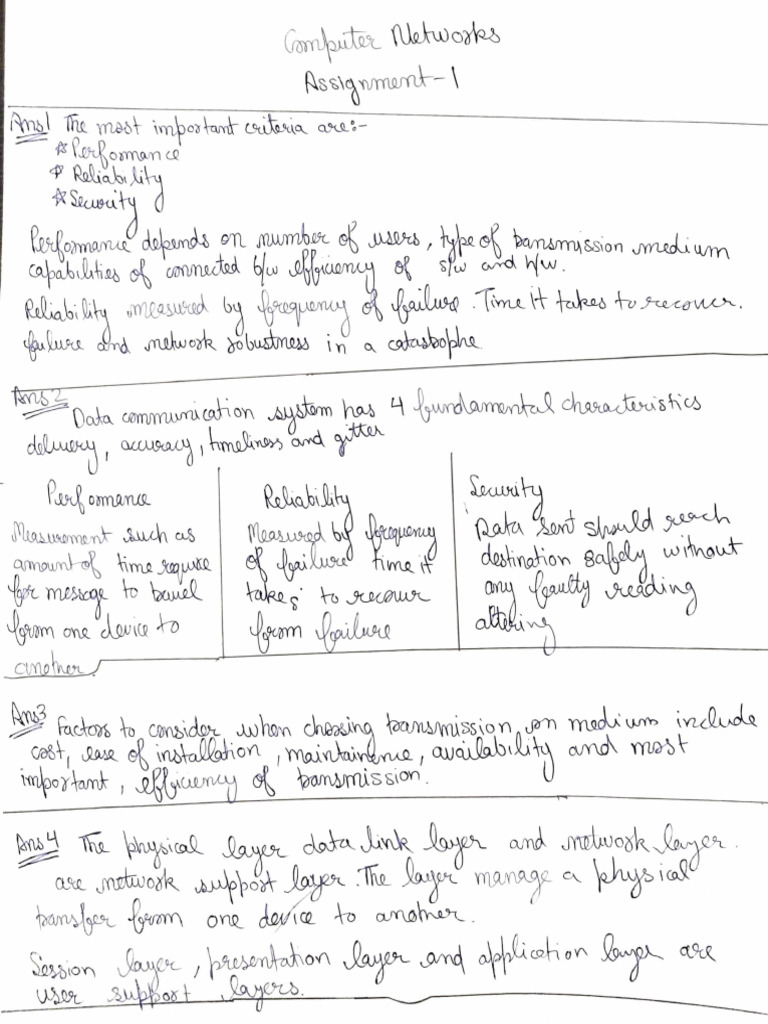 Computer Networks
Assignment-1
Ans1 The most important criteria are:-
☆ Performance
☆ Reliability
☆ Security
Performance depends on number of users, type of transmission medium
capabilities of connected b/w efficiency of s/w and h/w.
Reliability measured by frequency of failure. Time it takes to recover.
failure and network robustness in a catastrophe
Ans2
Data communication system has 4 fundamental characteristics
delivery, accuracy, timeliness and gitter
Performance
Measurement such as
amount of time require
for message to travel
from one device to
another.
Reliability
Measured by frequency
of failure time it
takes to recover
from failure
Security
Data sent should reach
destination safely without
any faulty reading
altering
Ans3 Factors to consider when choosing transmission on medium include
cost, ease of installation, maintainence, availability and most
important, efficiency of transmission.
Ans4 The physical layer data link layer and network layer.
are network support layer. The layer manage a physical
transfer from one device to another.
Session layer, presentation layer and application layer are
user support layers.